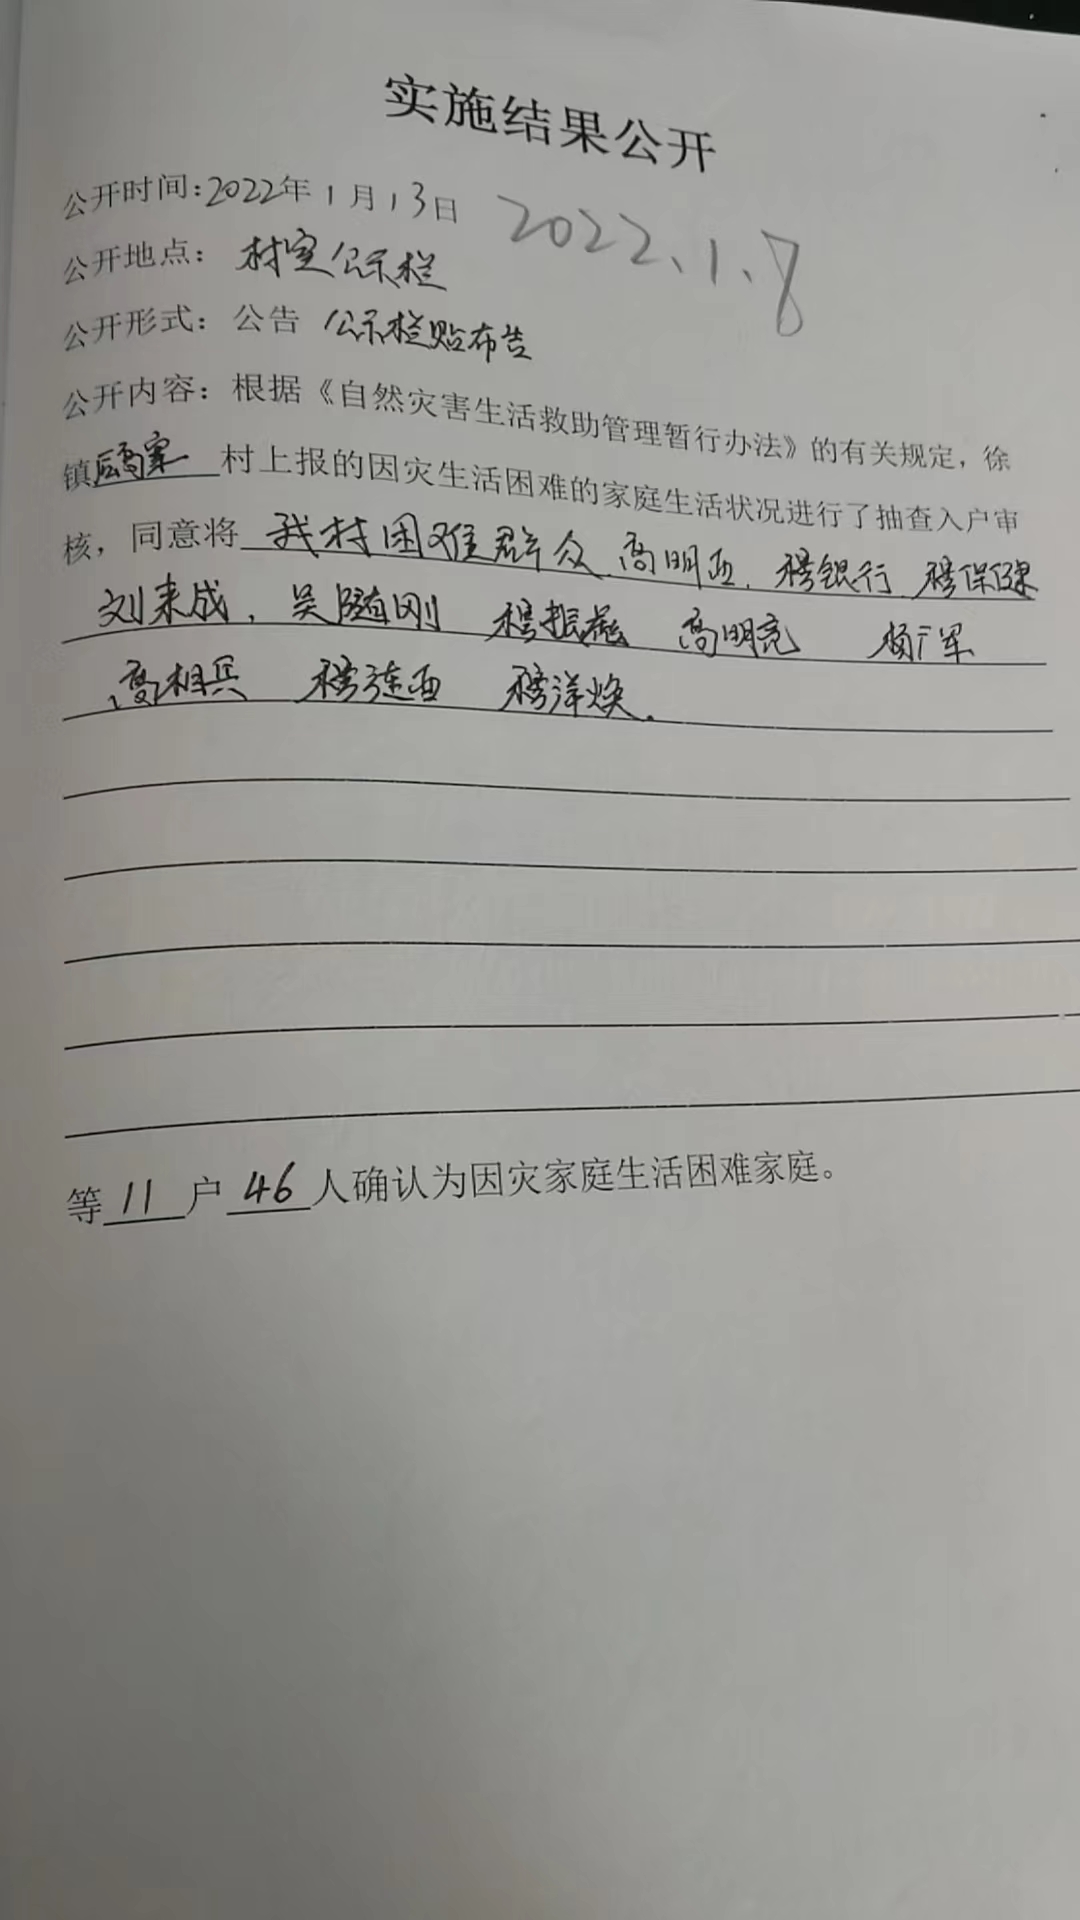 实施结果公开
公开时间:2022年1月13日 2022.1.8
公开地点: 村室公示栏
公开形式: 公告 公示栏贴布告
公开内容: 根据《自然灾害生活救助管理暂行办法》的有关规定, 徐
镇后高寨村上报的因灾生活困难的家庭生活状况进行了抽查入户审
核, 同意将 我村困难群众 高明西. 穆银行 穆保健
刘来成, 吴随刚 穆振 高明亮 杨广军
高相兵 穆连西 穆洋焕.
等 11 户 46 人确认为因灾家庭生活困难家庭。